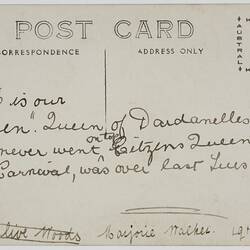 POST CARD
CORRESPONDENCE
ADDRESS ONLY
AUSTRAL
is our
en". Queen of Dardanelles
on top
never went Citizens Queen
Carnival, was over last Tues
live Woods Marjorie Walker. 19